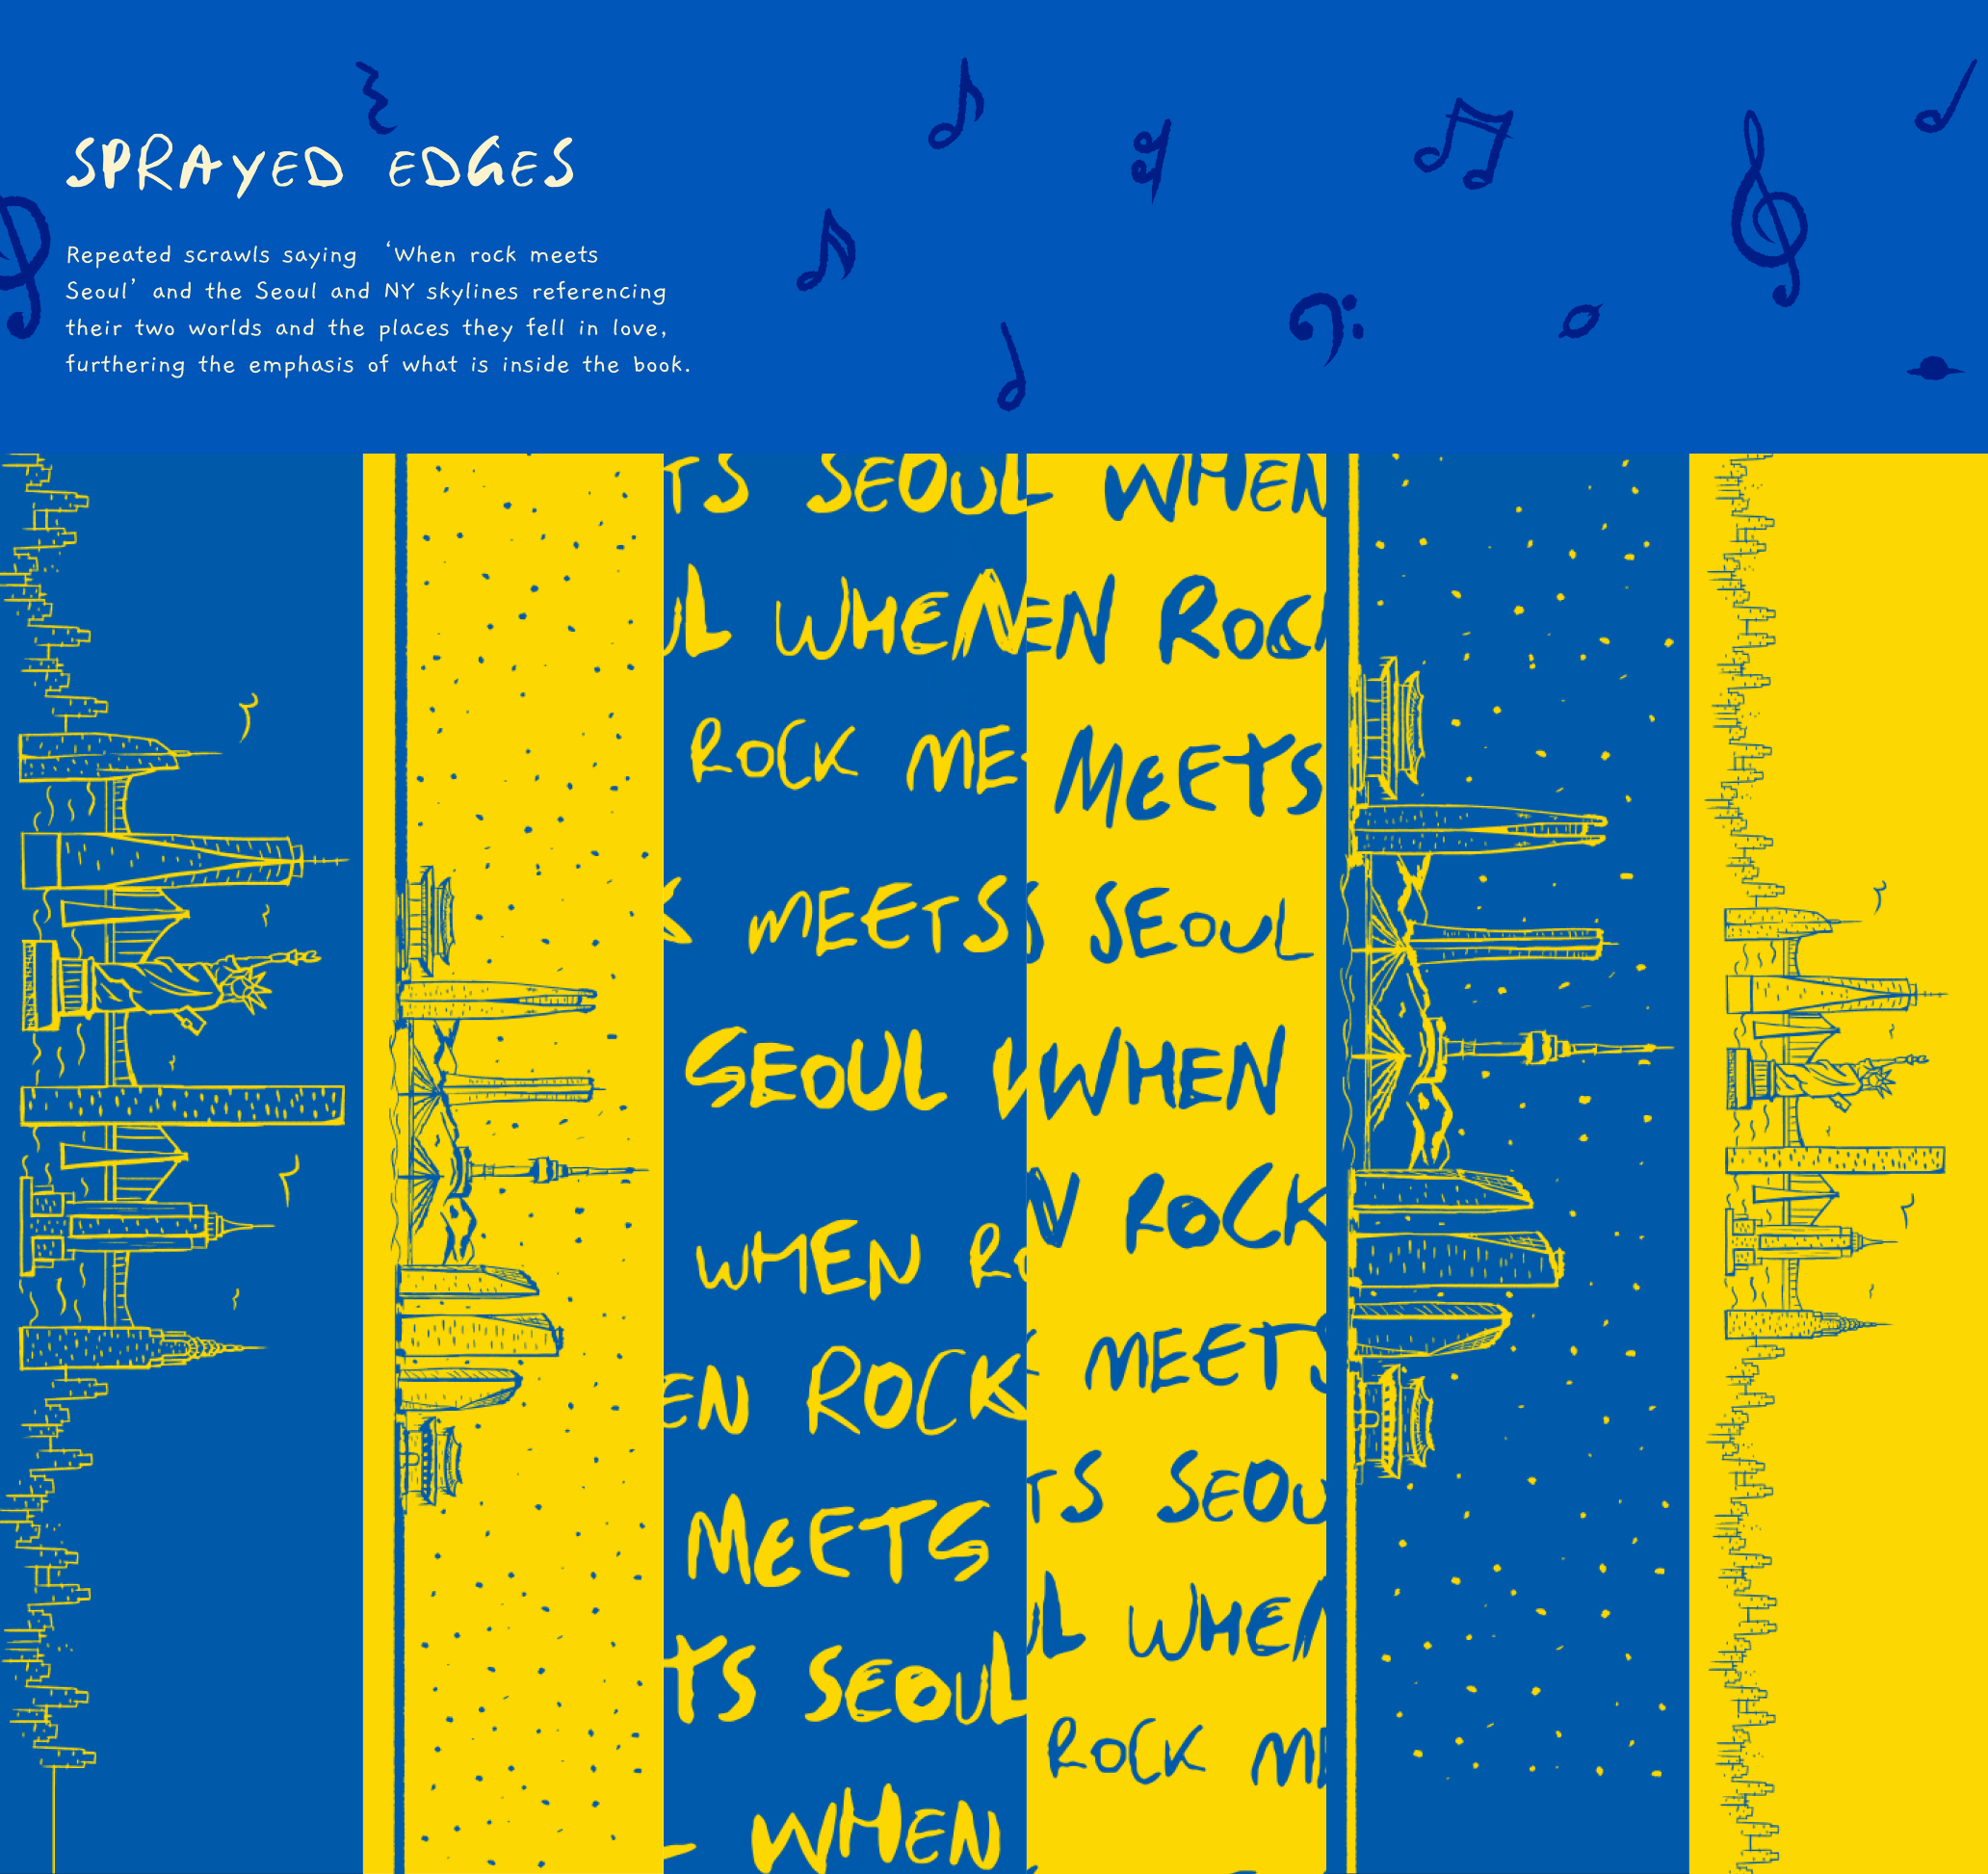 SPRAYED EDGES
Repeated scrawls saying ‘When rock meets
Seoul’ and the Seoul and NY skylines referencing
their two worlds and the places they fell in love,
furthering the emphasis of what is inside the book.
TS SEOUL
UL WHEN
ROCK ME
K MEETS
SEOUL W
WHEN RO
EN ROCK
MEETS
TS SEOUL
L WHEN
L WHEN
EN ROCK
MEETS
S SEOUL
WHEN
N ROCK
K MEETS
TS SEOU
UL WHEN
ROCK ME